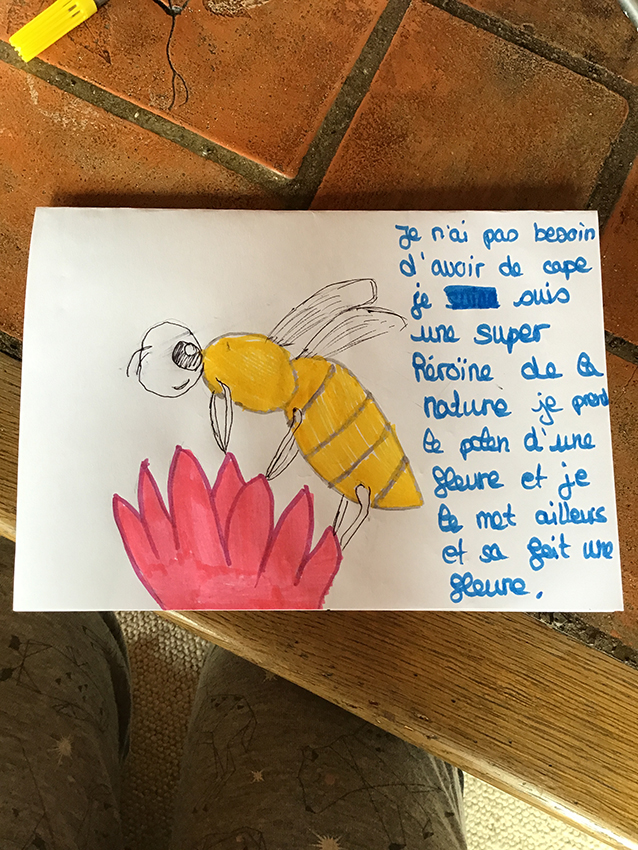 Je n'ai pas besoin
d'avoir de cape
je suis
une super
héroïne de la
nature je prend
le polen d'une
fleure et je
le met ailleurs
et sa fait une
fleure.